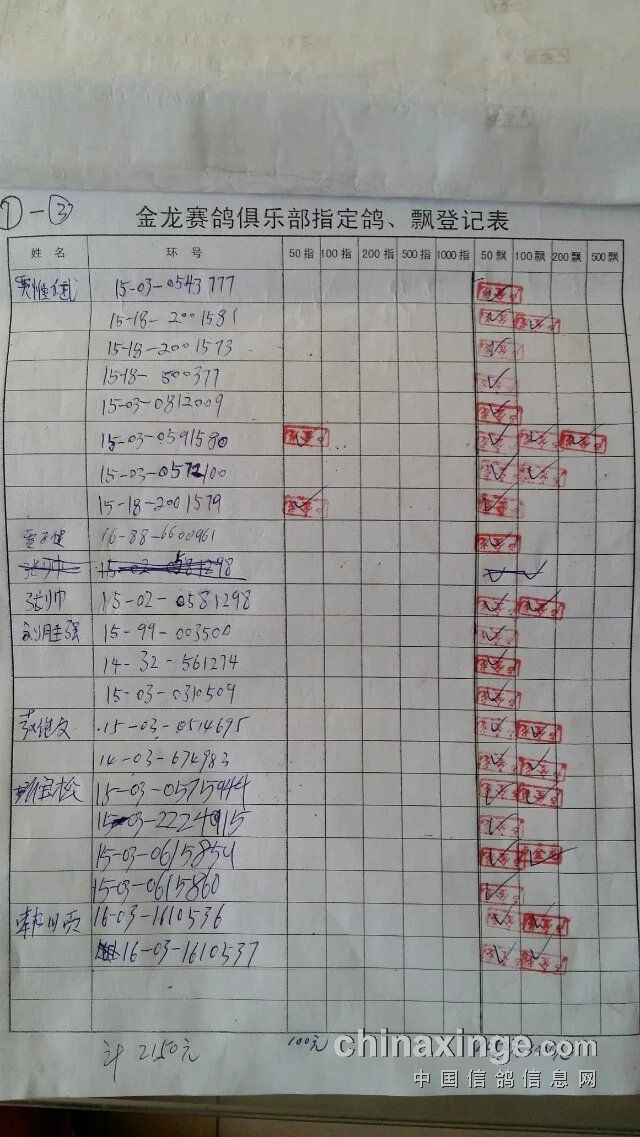 ①-③ 金龙赛鸽俱乐部指定鸽、飘登记表
姓名 环号 50指 100指 200指 500指 1000指 50飘 100飘 200飘 500飘
15-03-0543777
15-18-2001581
15-18-2001573
15-18-500377
15-03-0812009
15-03-0591580
15-03-0572100
15-18-2001579
16-88-6600961
张帅 15-02-0581298
张帅 15-02-0581298
刘胜强 15-99-003500
14-32-561274
15-03-0310509
15-03-0514695
14-03-674983
15-03-0575944
15-03-2224915
15-03-0615854
15-03-0615860
16-03-1610536
16-03-1610537
计 2150元 100元
chinaxinge.com
中国信鸽信息网